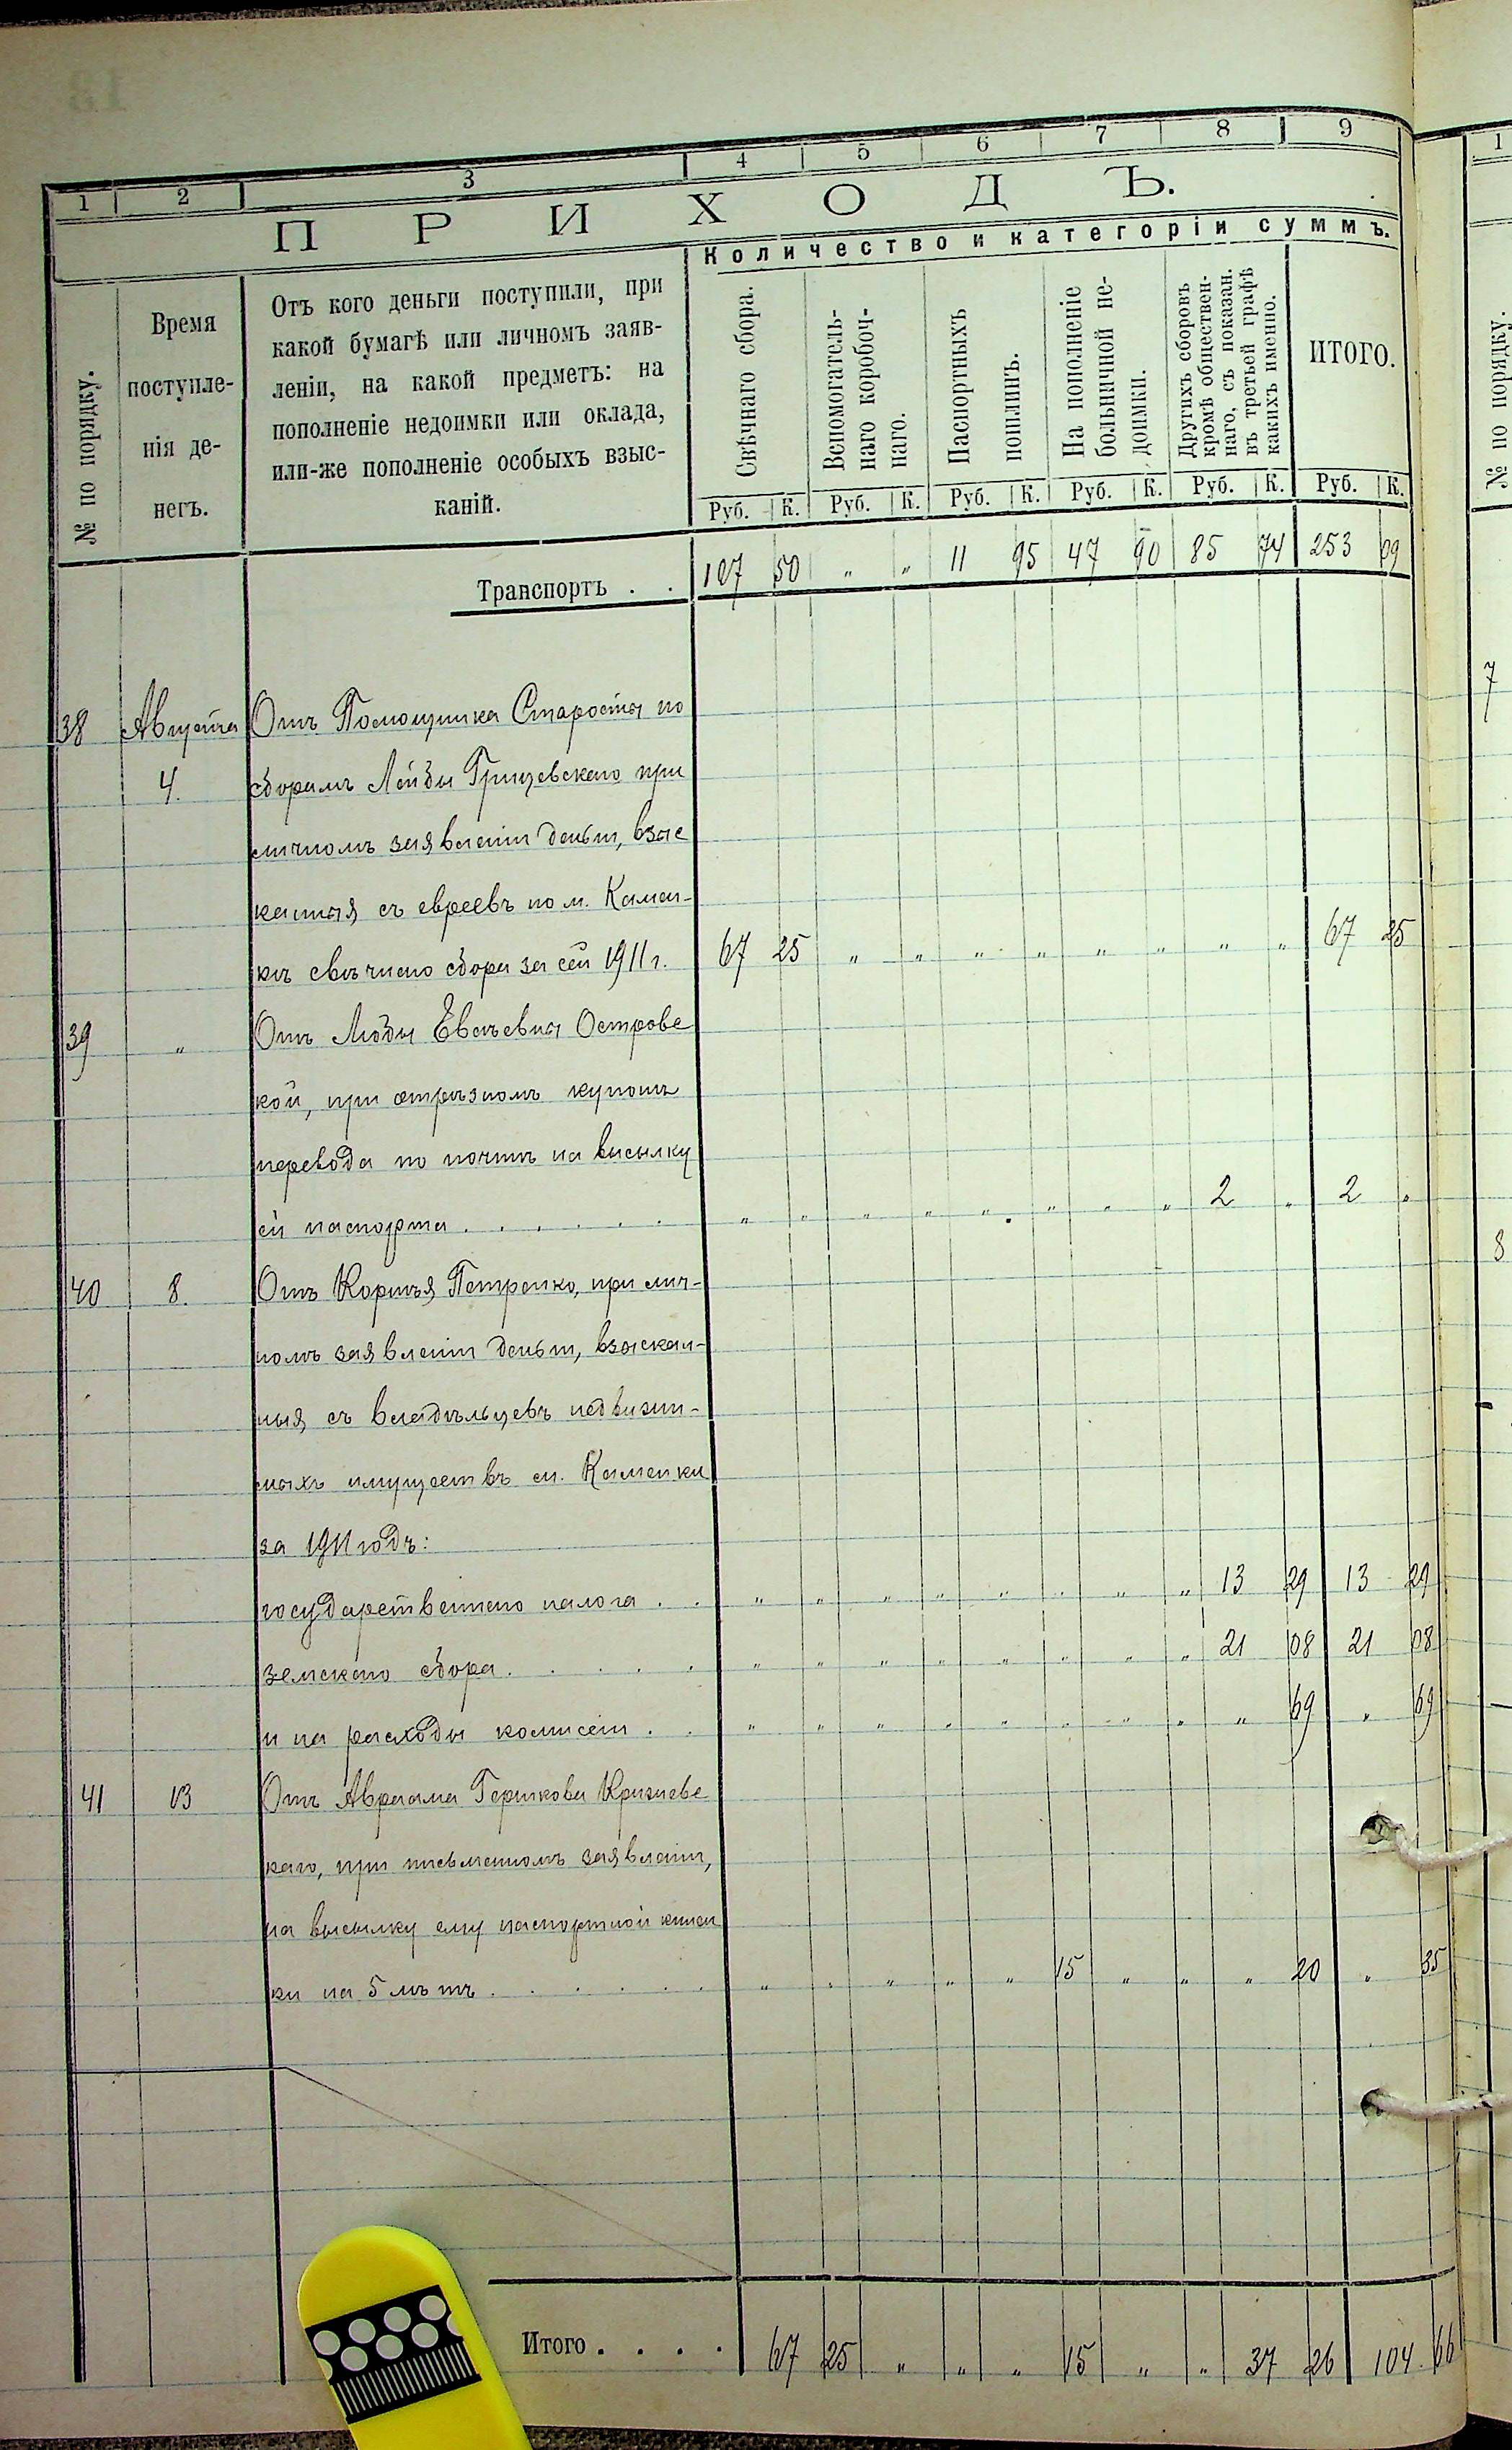 1 2 3 4 5 6 7 8 9
ПРИХОДЪ.
Количество и категоріи суммъ.
№ по порядку.
Время
поступле-
нія де-
негъ.
Отъ кого деньги поступили, при
какой бумагѣ или личномъ заяв-
леніи, на какой предметъ: на
пополненіе недоимки или оклада,
или-же пополненіе особыхъ взыс-
каній.
Свѣчнаго сбора.
Вспомогатель-
наго коробоч-
наго.
Паспортныхъ
пошлинъ.
На пополненіе
больничной не-
доимки.
Другихъ сборовъ
кромѣ обществен-
наго, съ показан.
въ третьей графѣ
какихъ именно.
ИТОГО.
Руб. К. Руб. К. Руб. К. Руб. К. Руб. К. Руб. К.
Транспортъ . . 107 50 „ „ 11 95 47 90 85 74 253 09
38 Августа Отъ Помощника Старосты по
4. сборамъ Лейбы Грищевскаго при
личномъ заявленіи деньги, взыс
канныя съ евреевъ по м. Камен-
кѣ свѣчнаго сбора за сей 1911 г. 67 25 „ „ „ „ „ „ „ „ 67 25
39 „ Отъ Острове
кой, при отрѣзномъ купонѣ
перевода по почтѣ на высылку
ей паспорта . . . . . . „ „ „ „ „ „ „ „ 2 „ 2 „
40 8. Отъ Корнѣя Петренко, при лич-
номъ заявленіи деньги, взыскан-
ныя съ владѣльцевъ недвижи-
мыхъ имуществъ м. Каменки
за 1911 годъ:
государственнаго налога . . „ „ „ „ „ „ „ „ 13 29 13 29
земскаго сбора . . . . . „ „ „ „ „ „ „ „ 21 08 21 08
и на расходы комисіи . . „ „ „ „ „ „ „ „ „ 69 „ 69
41 13 Отъ Авраама Гершкова
каго, при письменномъ заявленіи,
на высылку ему паспортной книж
ки на 5 лѣтъ . . . . . . „ „ „ „ „ 15 „ „ „ 20 „ 35
Итого . . . . 67 25 „ „ „ 15 „ „ 37 26 104 66
1
№ по порядку.
7
8